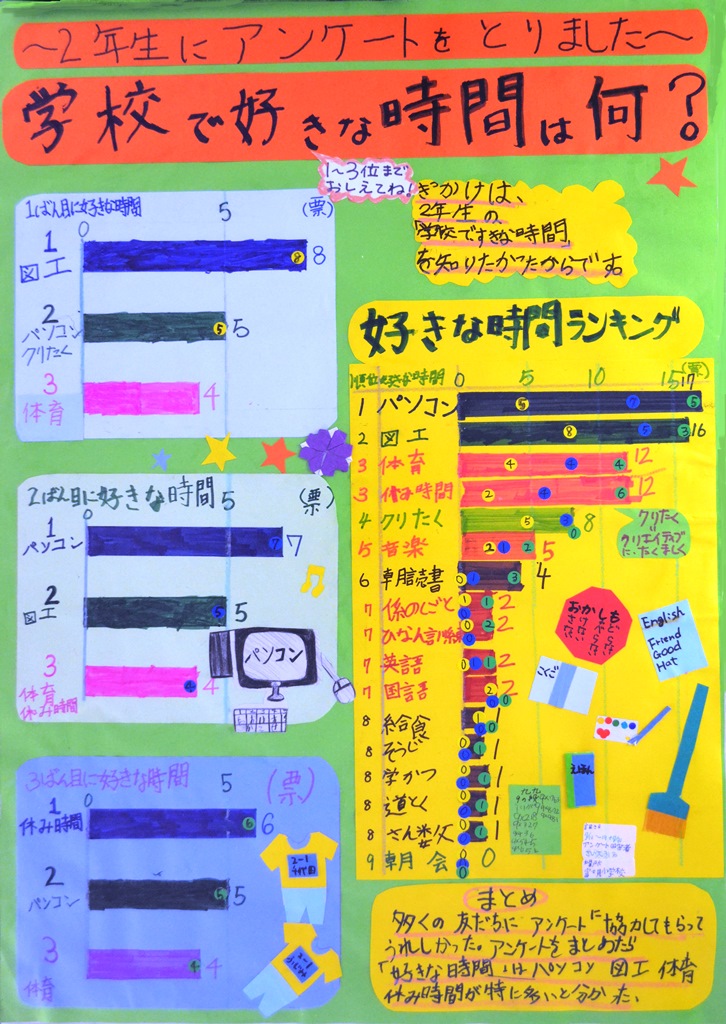 ～2年生にアンケートをとりました～
学校で好きな時間は何?
1～3位まで
おしえてね!
きかけは、
2年生の、
「学校ですきな時間」
を知りたかったからです。
1ばん目に好きな時間
5
(票)
0
1
図工
8
8
2
パソコン
クリたく
5
5
3
体育
4
2ばん目に好きな時間
5
(票)
0
1
パソコン
7
7
2
図工
5
5
3
体育
休み時間
4
4
パソコン
3ばん目に好きな時間
5
(票)
0
1
休み時間
6
6
2
パソコン
5
5
3
体育
4
4
2-1
2-1
好きな時間ランキング
順位 好きな時間 0 5 10 15 17 (票)
1 パソコン 5 7 5
2 図工 8 5 3 16
3 体育 4 4 4 12
3 休み時間 2 4 6 12
4 クリたく 5 3 0 8
クリたく
=
クリエイティブ
に・たくましく
5 音楽 2 1 2 5
6 朝読書 0 1 3 4
7 係のしごと 1 0 1 2
7 ひなん訓練 0 0 2 2
7 英語 0 1 1 2
7 国語 2 0 0 2
8 給食 0 1 0 1
8 そうじ 0 0 1 1
8 学かつ 1
8 道とく 1
8 さん数 1
9 朝会 0 0
おかしも
English
Friend
Good
Hat
こくご
えほん
九九
まとめ
多くの友だちにアンケートに協力してもらって
うれしかった。アンケートをまとめたら
「好きな時間」はパソコン 図工 体育
休み時間が特に多いと分かった。